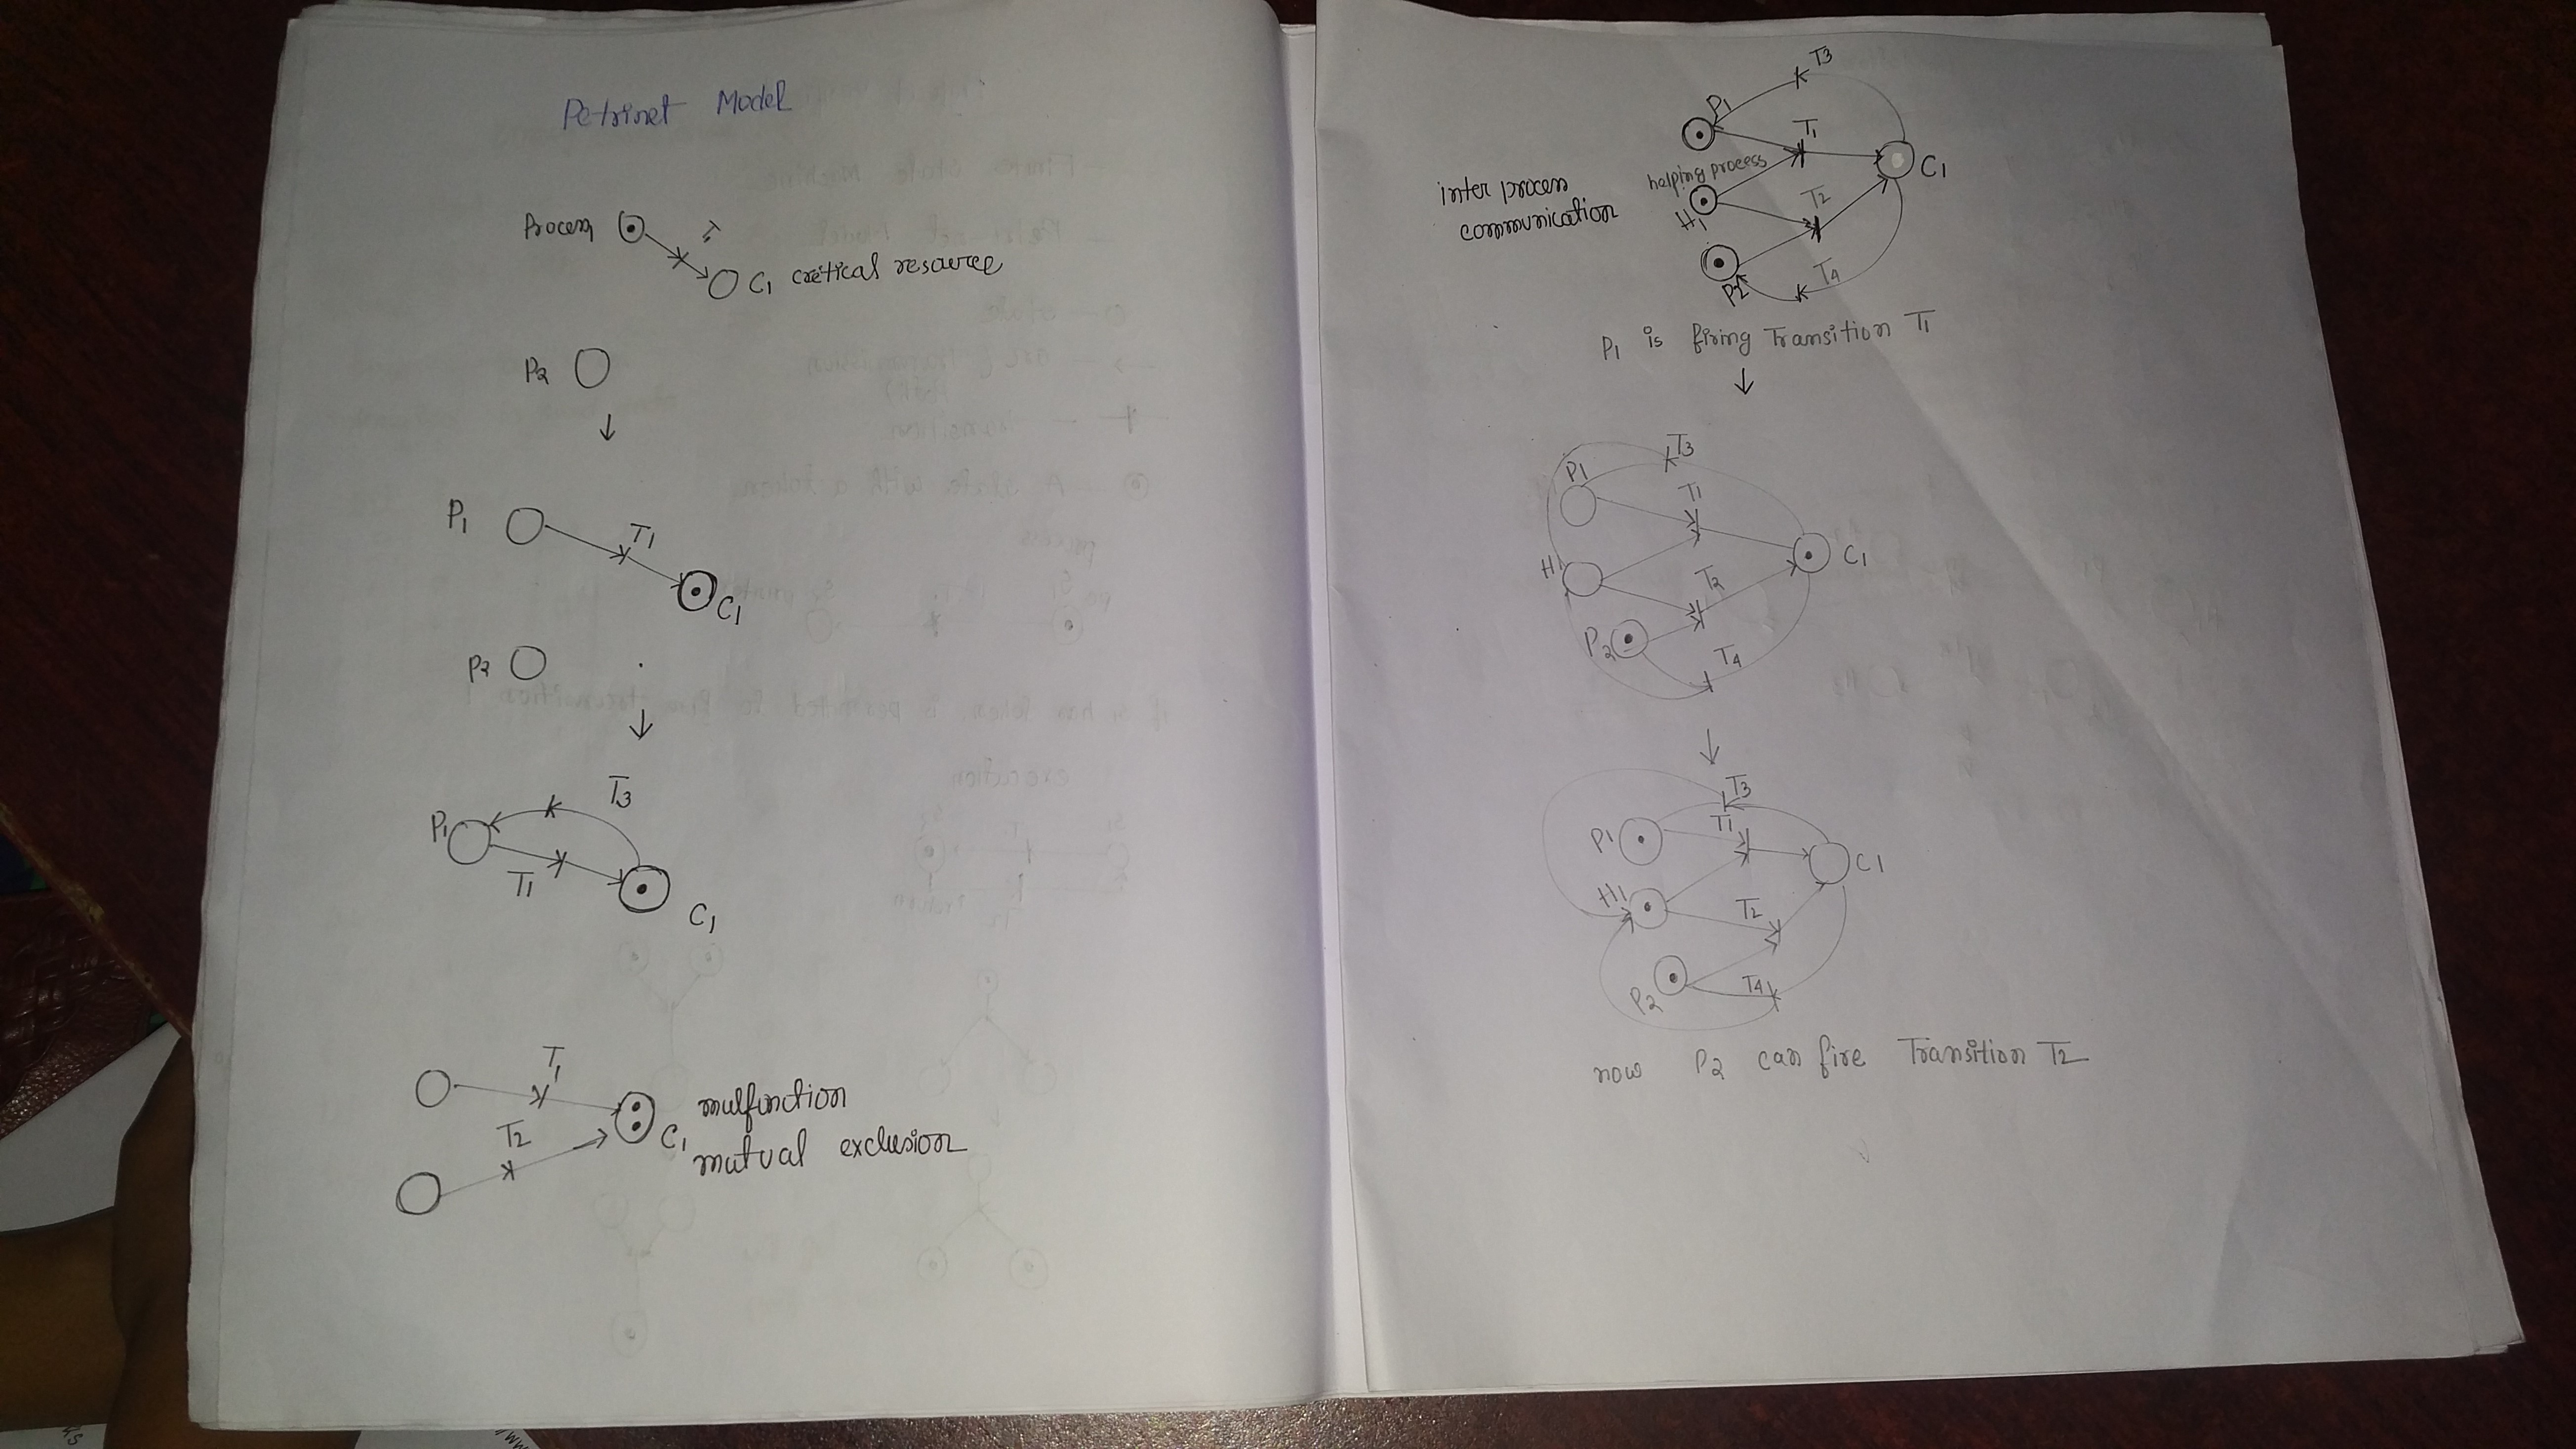 Petrinet Model
Process
T1
C1 critical resource
P2
P1
T1
C1
P2
T3
P1
T1
C1
T1
T2
C1
mulfunction
mutual exclusion
T3
P1
T1
C1
inter process
communication
helping process
H1
T2
P2
T4
P1 is firing Transition T1
T3
P1
T1
C1
H1
T2
P2
T4
T3
P1
T1
C1
H1
T2
P2
T4
now P2 can fire Transition T2